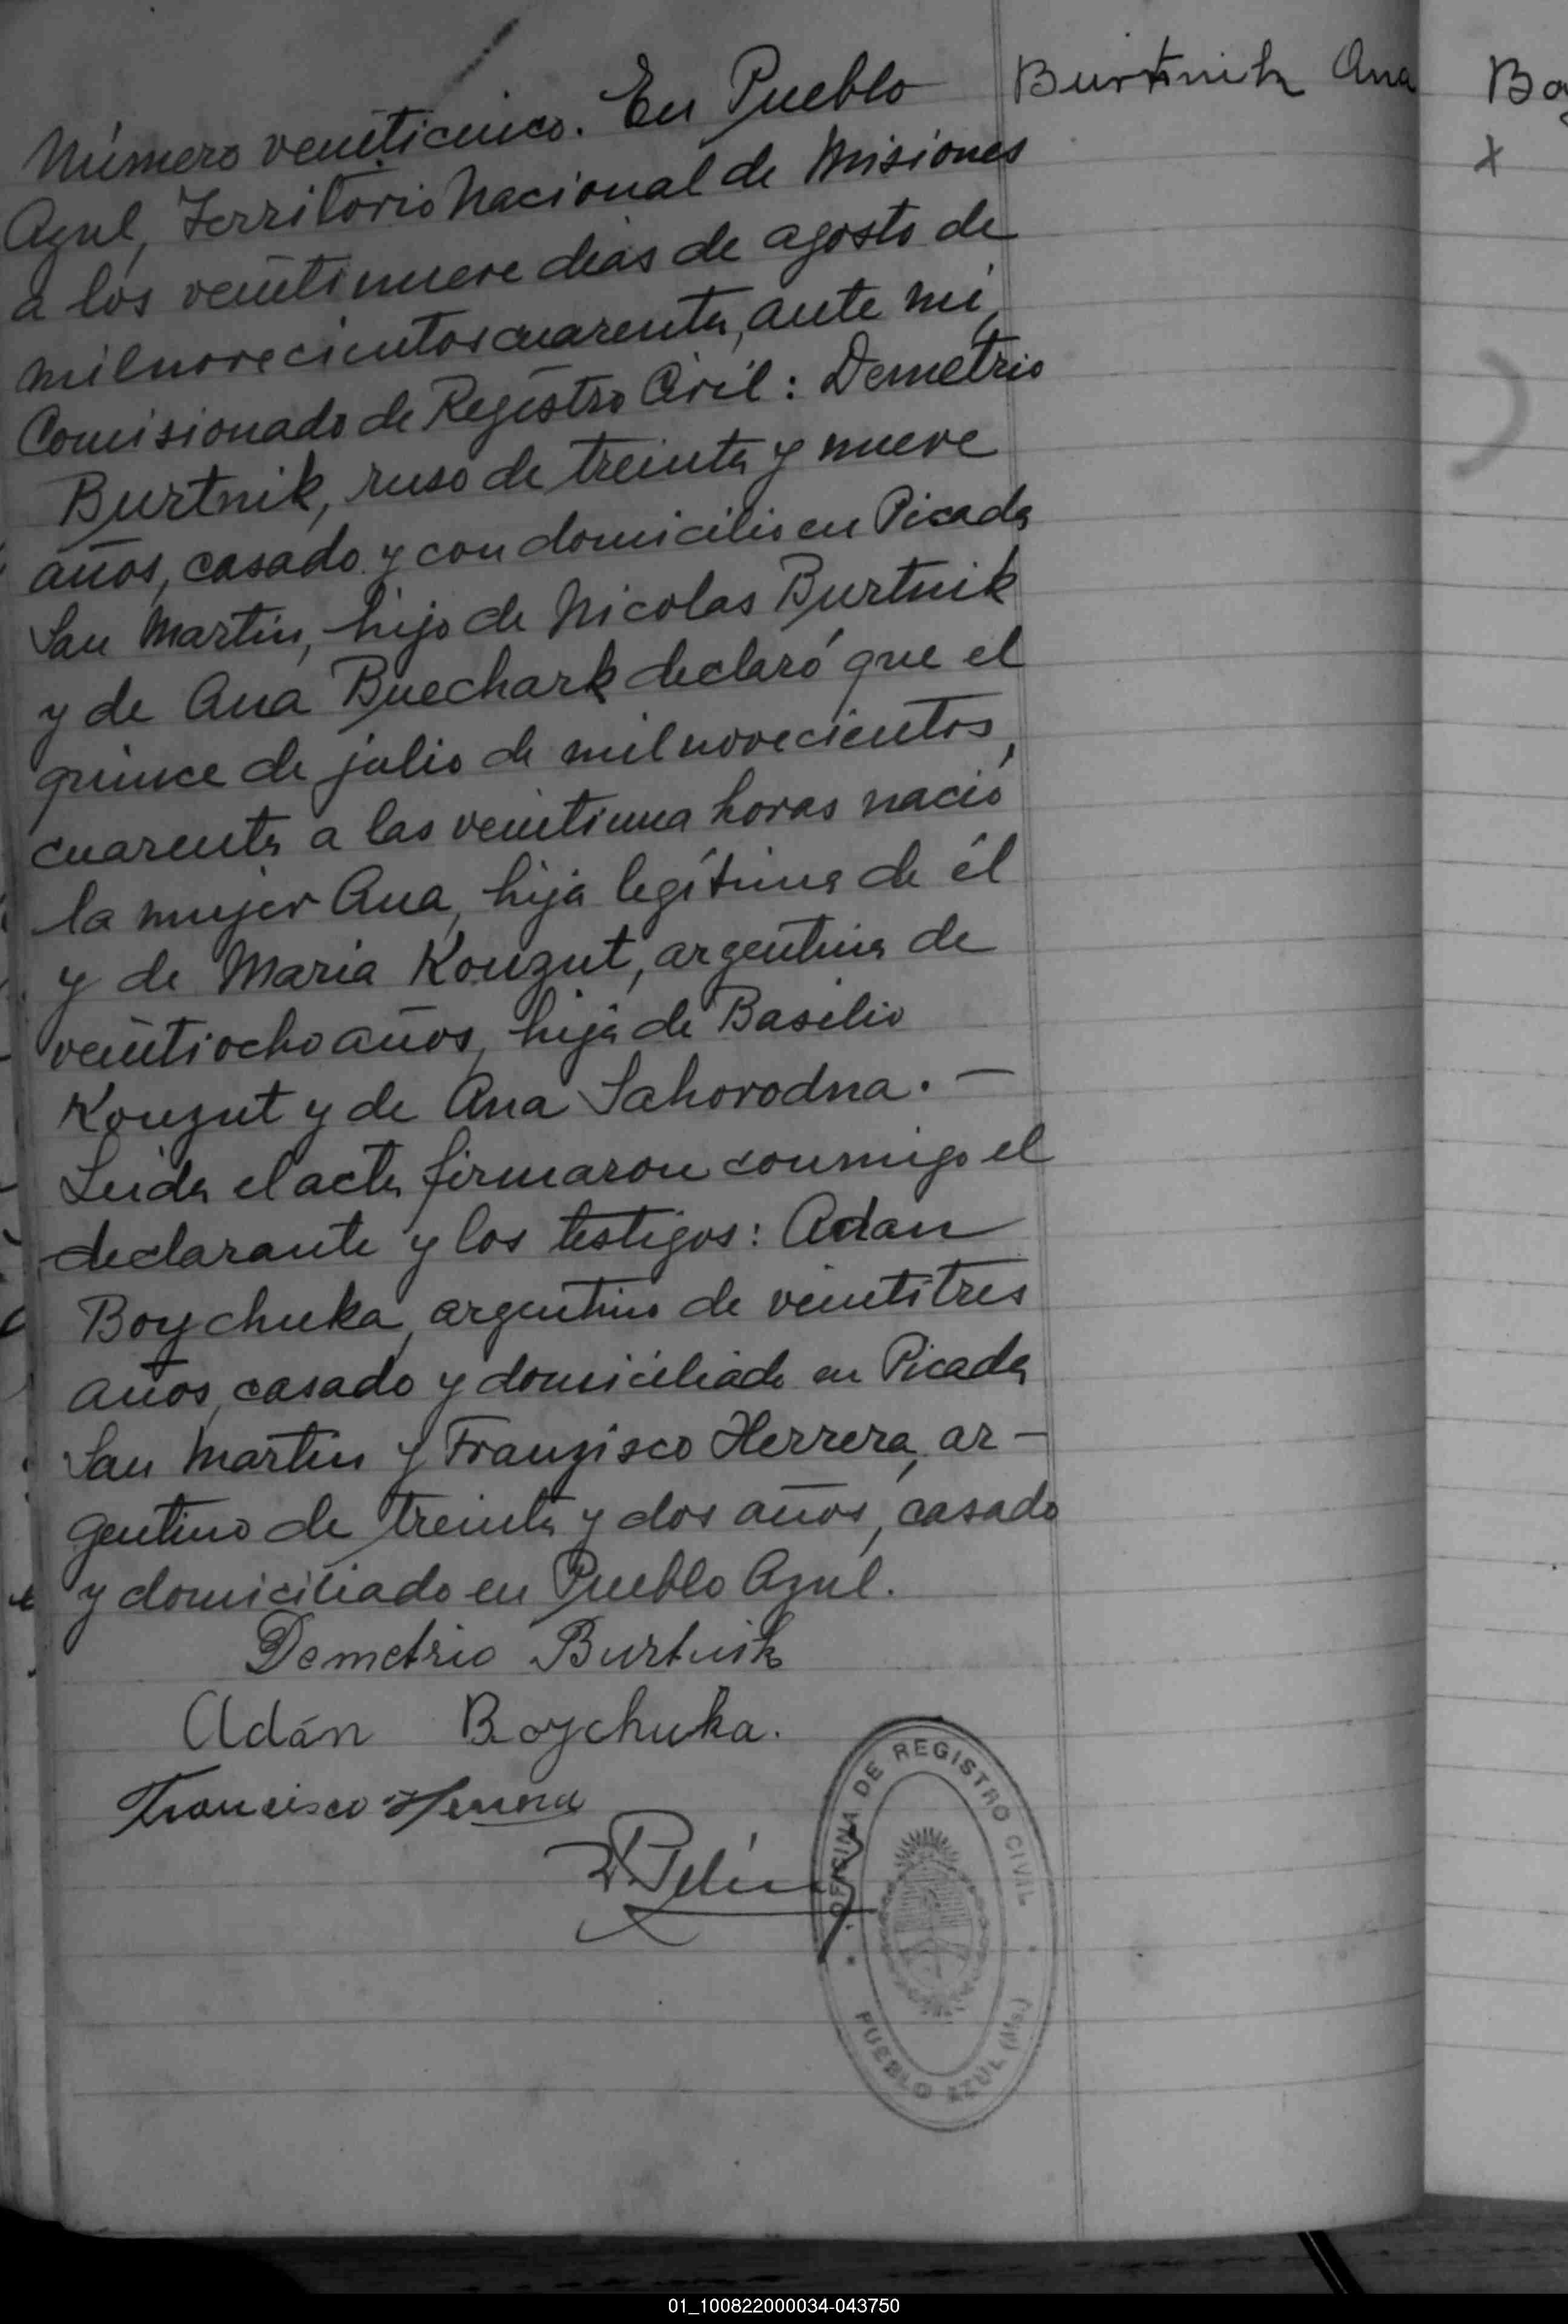 Burtnik Ana
Número veinticinco. En Pueblo
Azul, Territorio Nacional de Misiones
a los veintinueve dias de agosto de
milnovecientoscuarenta, ante mí,
Comisionado de Registro Civil: Demetrio
Burtnik, ruso de treinta y nueve
años, casado y con domicilio en Picada
San Martin, hijo de Nicolas Burtnik
y de Ana Buechark declaró que el
quince de julio de milnovecientos
cuarenta a las veintiuna horas nació
la mujer Ana, hija legítima de él
y de Maria Kouzut, argentina de
veintiocho años, hija de Basilio
Kouzut y de Ana Sahorodna. —
Leida el acta firmaron conmigo el
declarante y los testigos: Adan
Boychuka, argentino de veintitres
años, casado y domiciliado en Picada
San Martin y Franzisco Herrera, ar-
gentino de treinta y dos años, casado
y domiciliado en Pueblo Azul.
Demetrio Burtnik
Adán Boychuka.
Francisco Herrera
OFICINA DE REGISTRO CIVIL
PUEBLO AZUL (Ms.)
Bo
x
01_100822000034-043750